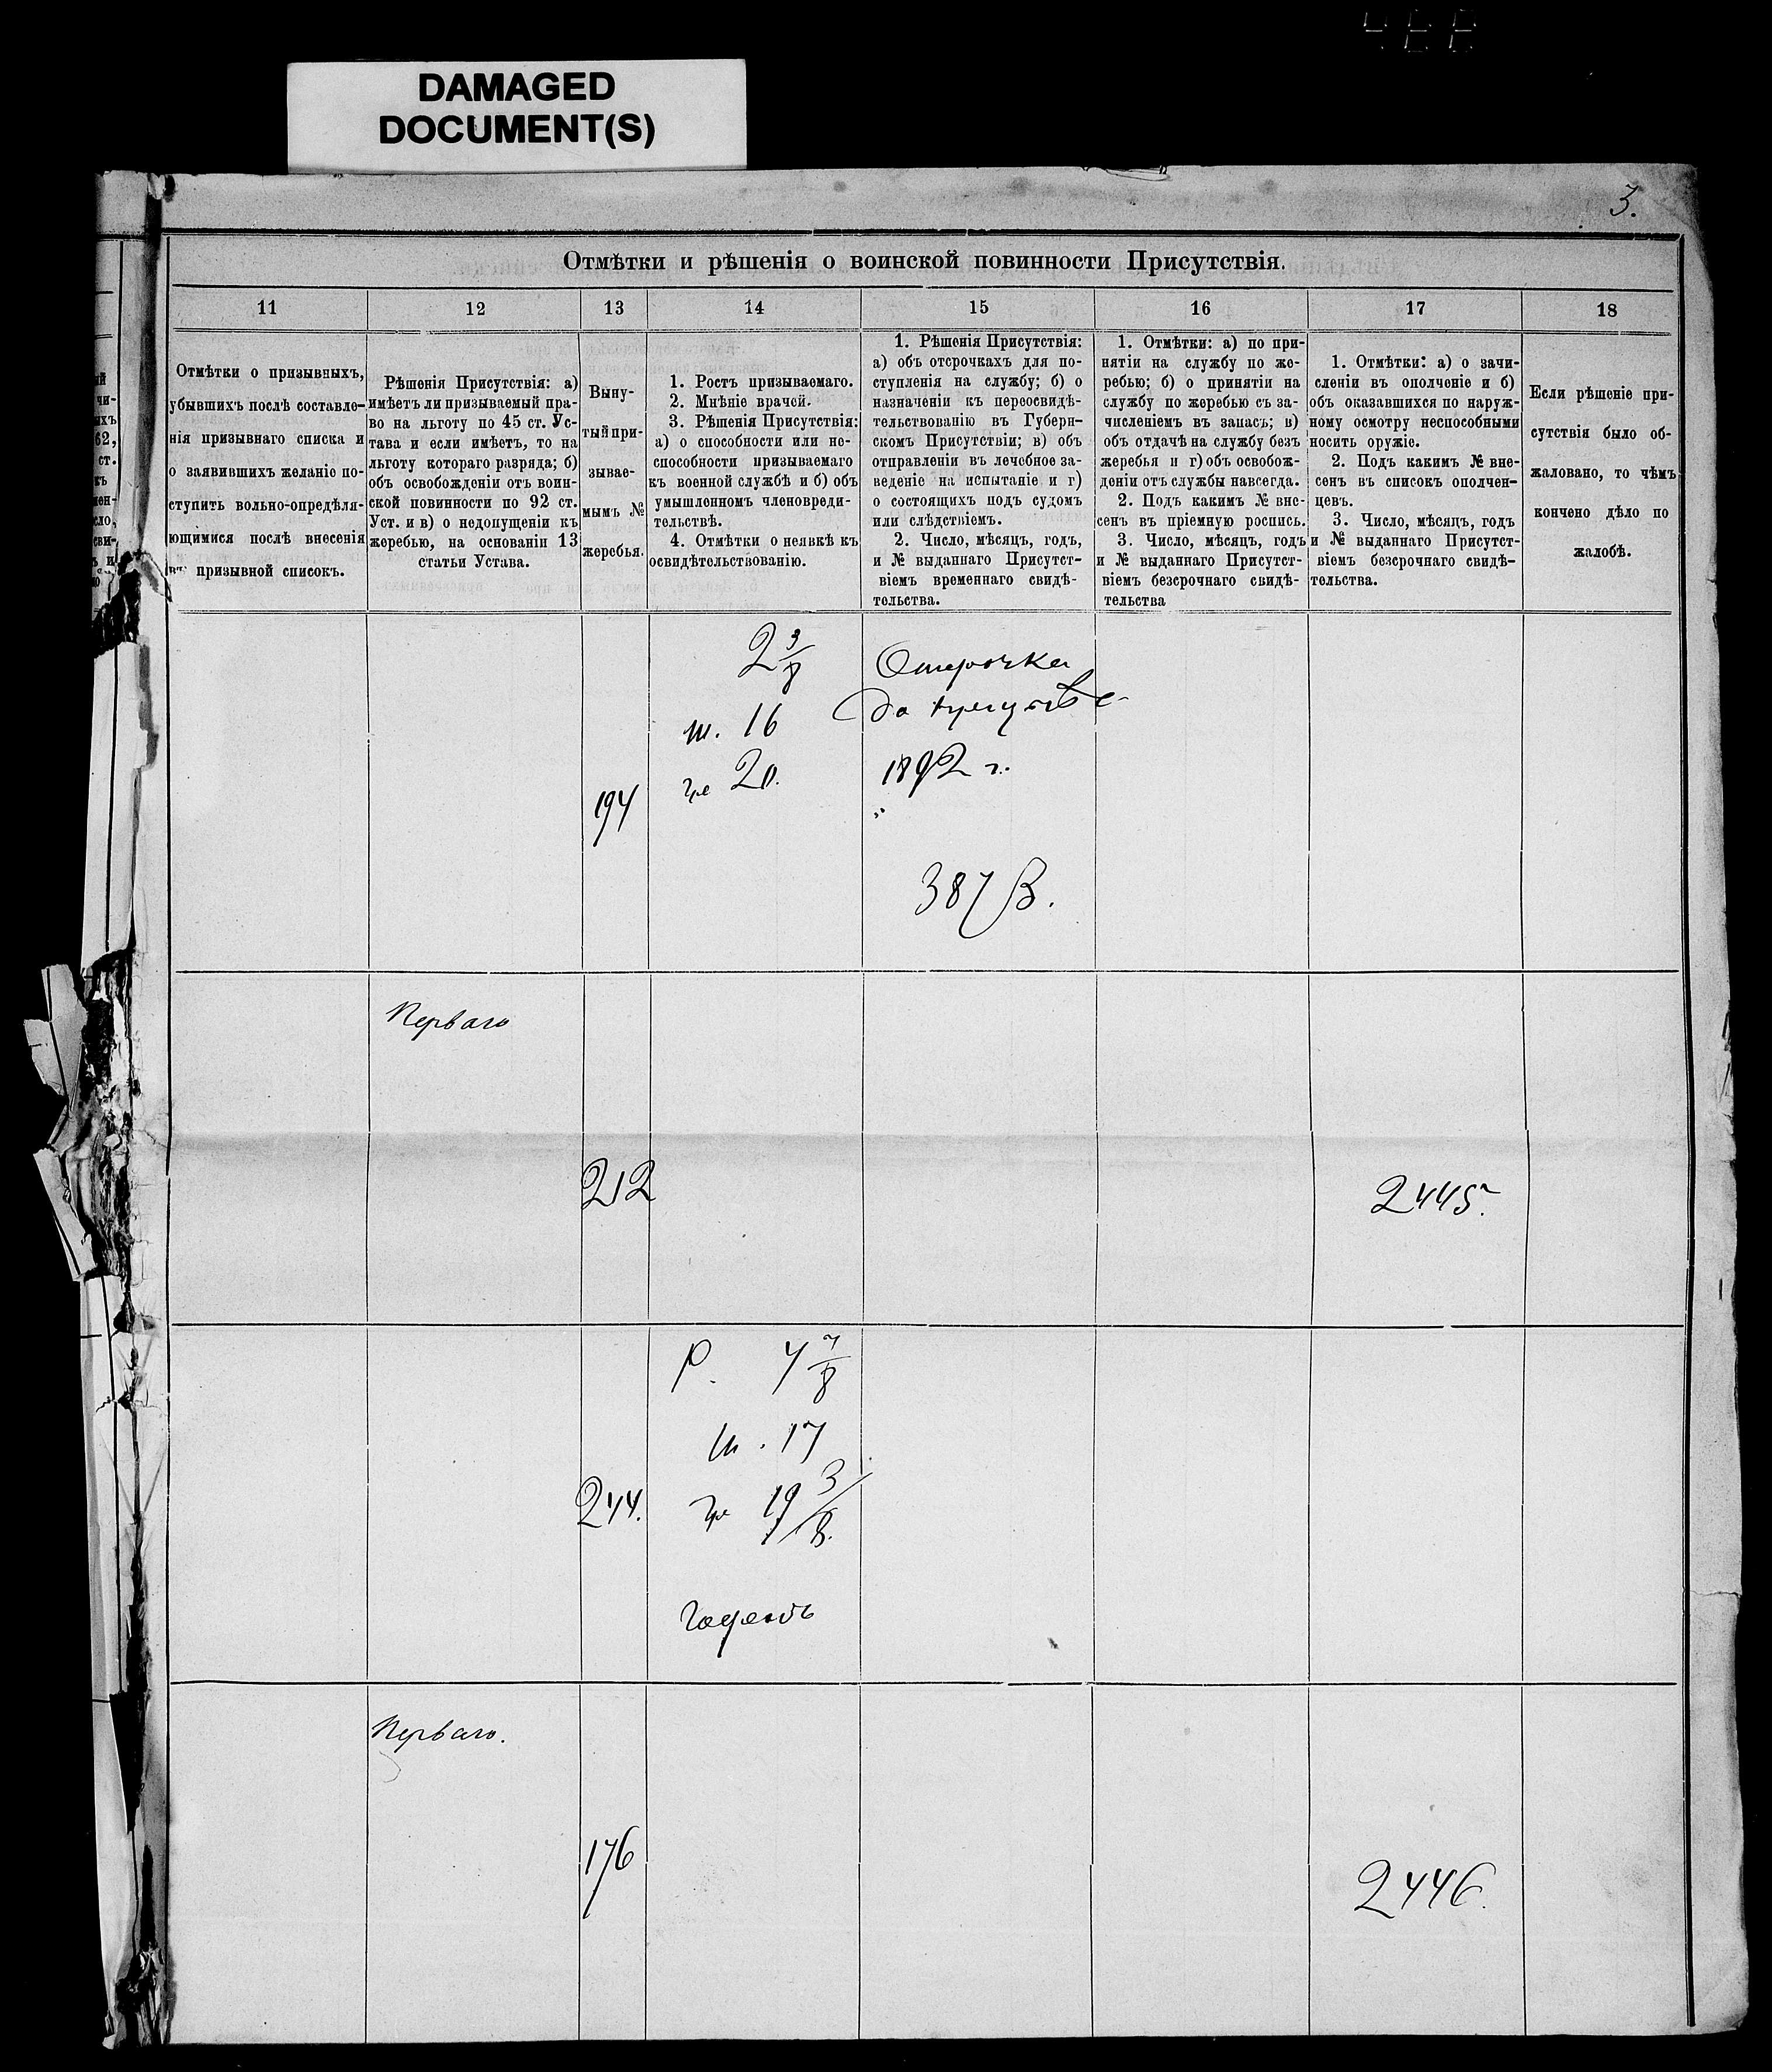 DAMAGED
DOCUMENT(S)
3.
Отмѣтки и рѣшенія о воинской повинности Присутствія.
11
12
13
14
15
16
17
18
Отмѣтки о призывныхъ,
убывшихъ послѣ составле-
нія призывнаго списка и
о заявившихъ желаніе по-
ступить вольно-опредѣля-
ющимися послѣ внесенія
въ призывной списокъ.
Рѣшенія Присутствія: а)
имѣетъ ли призываемый пра-
во на льготу по 45 ст. Ус-
тава и если имѣетъ, то на
льготу котораго разряда; б)
объ освобожденіи отъ воин-
ской повинности по 92 ст.
Уст. и в) о недопущеніи къ
жеребью, на основаніи 13
статьи Устава.
Выну-
тый при-
зывае-
мымъ №
жеребья.
1. Ростъ призываемаго.
2. Мнѣніе врачей.
3. Рѣшенія Присутствія:
а) о способности или не-
способности призываемаго
къ военной службѣ и б) объ
умышленномъ членовреди-
тельствѣ.
4. Отмѣтки о неявкѣ къ
освидѣтельствованію.
1. Рѣшенія Присутствія:
а) объ отсрочкахъ для по-
ступленія на службу; б) о
назначеніи къ переосвидѣ-
тельствованію въ Губерн-
скомъ Присутствіи; в) объ
отправленіи въ лечебное за-
веденіе на испытаніе и г)
о состоящихъ подъ судомъ
или слѣдствіемъ.
2. Число, мѣсяцъ, годъ,
и № выданнаго Присутст-
віемъ временнаго свидѣ-
тельства.
1. Отмѣтки: а) по при-
нятіи на службу по же-
ребью; б) о принятіи на
службу по жеребью съ за-
численіемъ въ запасъ; в)
объ отдачѣ на службу безъ
жеребья и г) объ освобож-
деніи отъ службы навсегда.
2. Подъ какимъ № вне-
сенъ въ пріемную роспись.
3. Число, мѣсяцъ, годъ
и № выданнаго Присутст-
віемъ безсрочнаго свидѣ-
тельства
1. Отмѣтки: а) о зачи-
сленіи въ ополченіе и б)
объ оказавшихся по наруж-
ному осмотру неспособными
носить оружіе.
2. Подъ какимъ № вне-
сенъ въ списокъ ополчен-
цевъ.
3. Число, мѣсяцъ, годъ
и № выданнаго Присутст-
віемъ безсрочнаго свидѣ-
тельства.
Если рѣшеніе при-
сутствія было об-
жаловано, то чѣмъ
кончено дѣло по
жалобѣ.
194
2 3/8
ш. 16
гр 20.
Отсрочка
до
1892 г.
387 В.
Перваго
212
2445.
244.
Р. 4 7/8
ш. 17
гр 19 3/8.
Годенъ
Перваго.
176
2446.